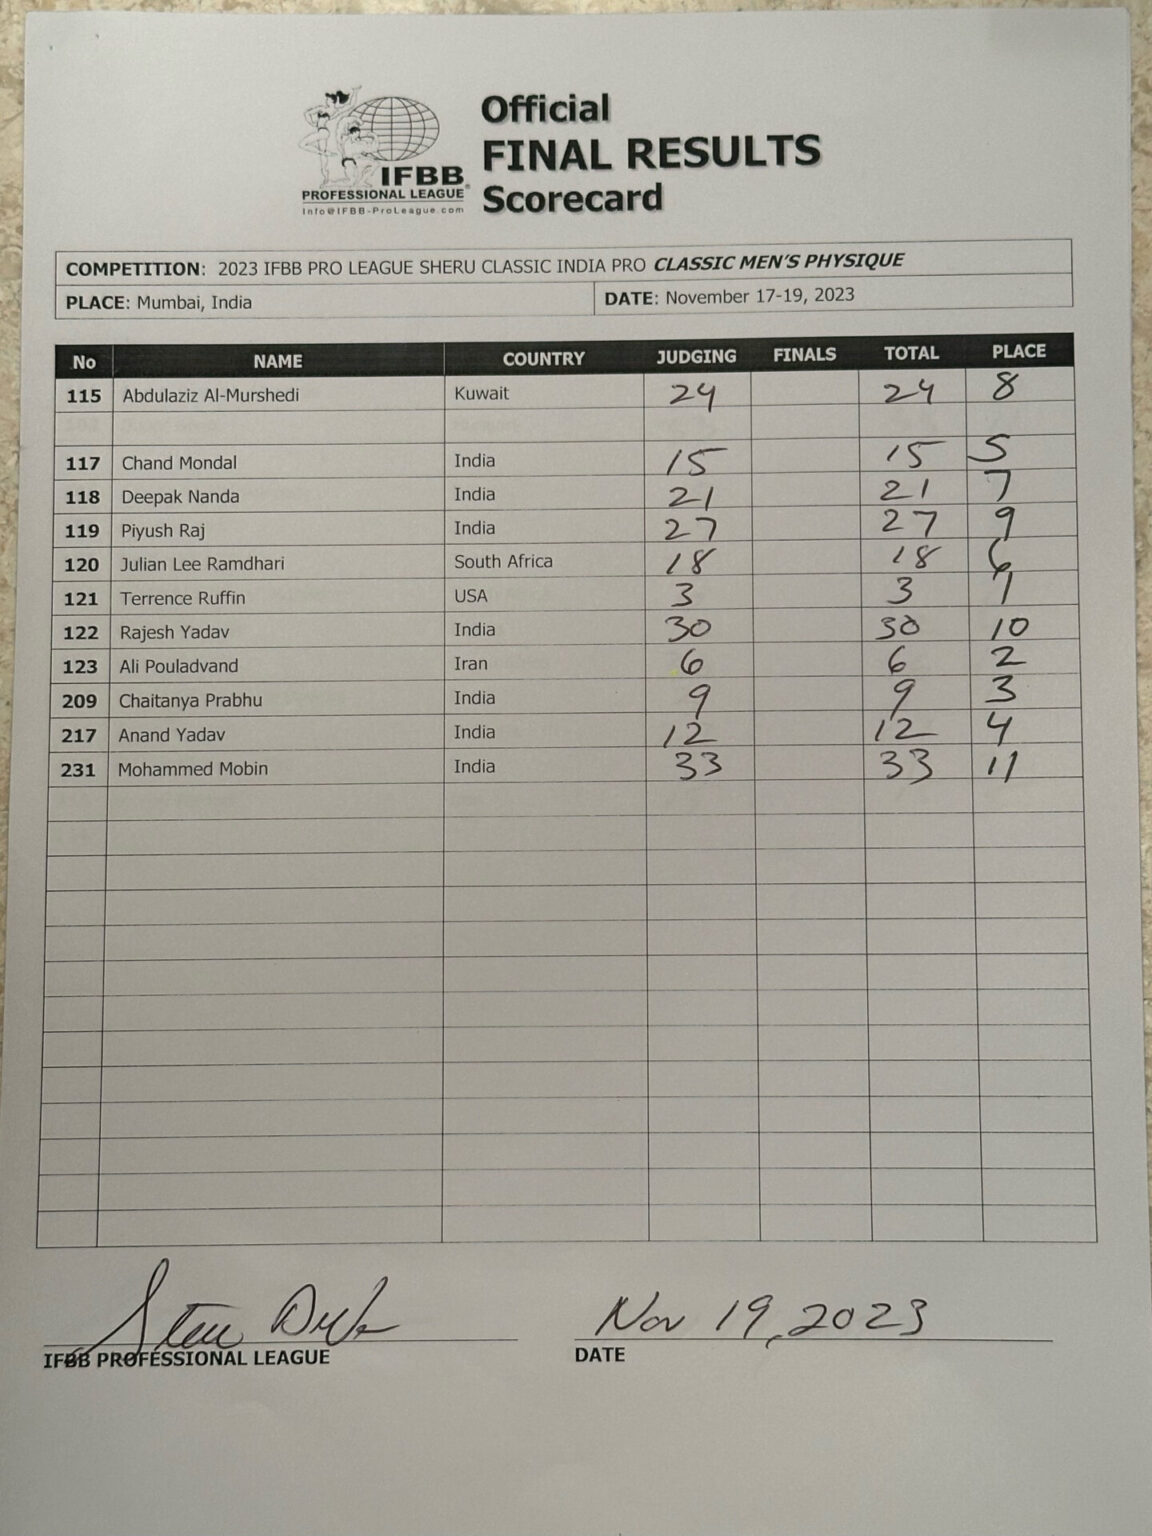 Official
FINAL RESULTS
Scorecard
IFBB
PROFESSIONAL LEAGUE
Info@IFBB-ProLeague.com
COMPETITION: 2023 IFBB PRO LEAGUE SHERU CLASSIC INDIA PRO CLASSIC MEN'S PHYSIQUE
PLACE: Mumbai, India DATE: November 17-19, 2023
No NAME COUNTRY JUDGING FINALS TOTAL PLACE
115 Abdulaziz Al-Murshedi Kuwait 24 24 8
117 Chand Mondal India 15 15 5
118 Deepak Nanda India 21 21 7
119 Piyush Raj India 27 27 9
120 Julian Lee Ramdhari South Africa 18 18 6
121 Terrence Ruffin USA 3 3 1
122 Rajesh Yadav India 30 30 10
123 Ali Pouladvand Iran 6 6 2
209 Chaitanya Prabhu India 9 9 3
217 Anand Yadav India 12 12 4
231 Mohammed Mobin India 33 33 11
Nov 19, 2023
IFBB PROFESSIONAL LEAGUE DATE